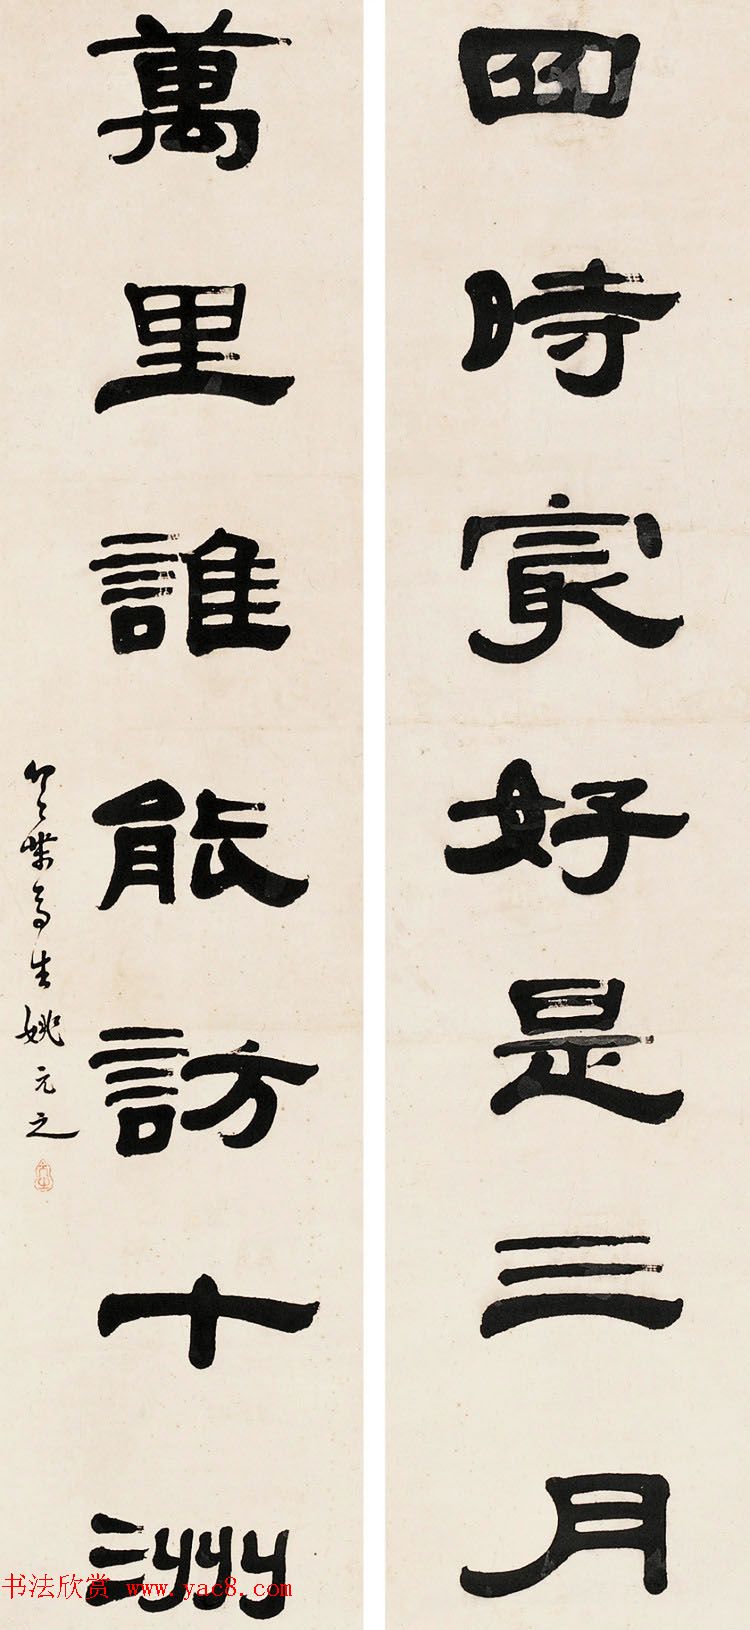 四時冣好是三月
萬里誰能訪十洲
姚元之
书法欣赏 www.yac8.com